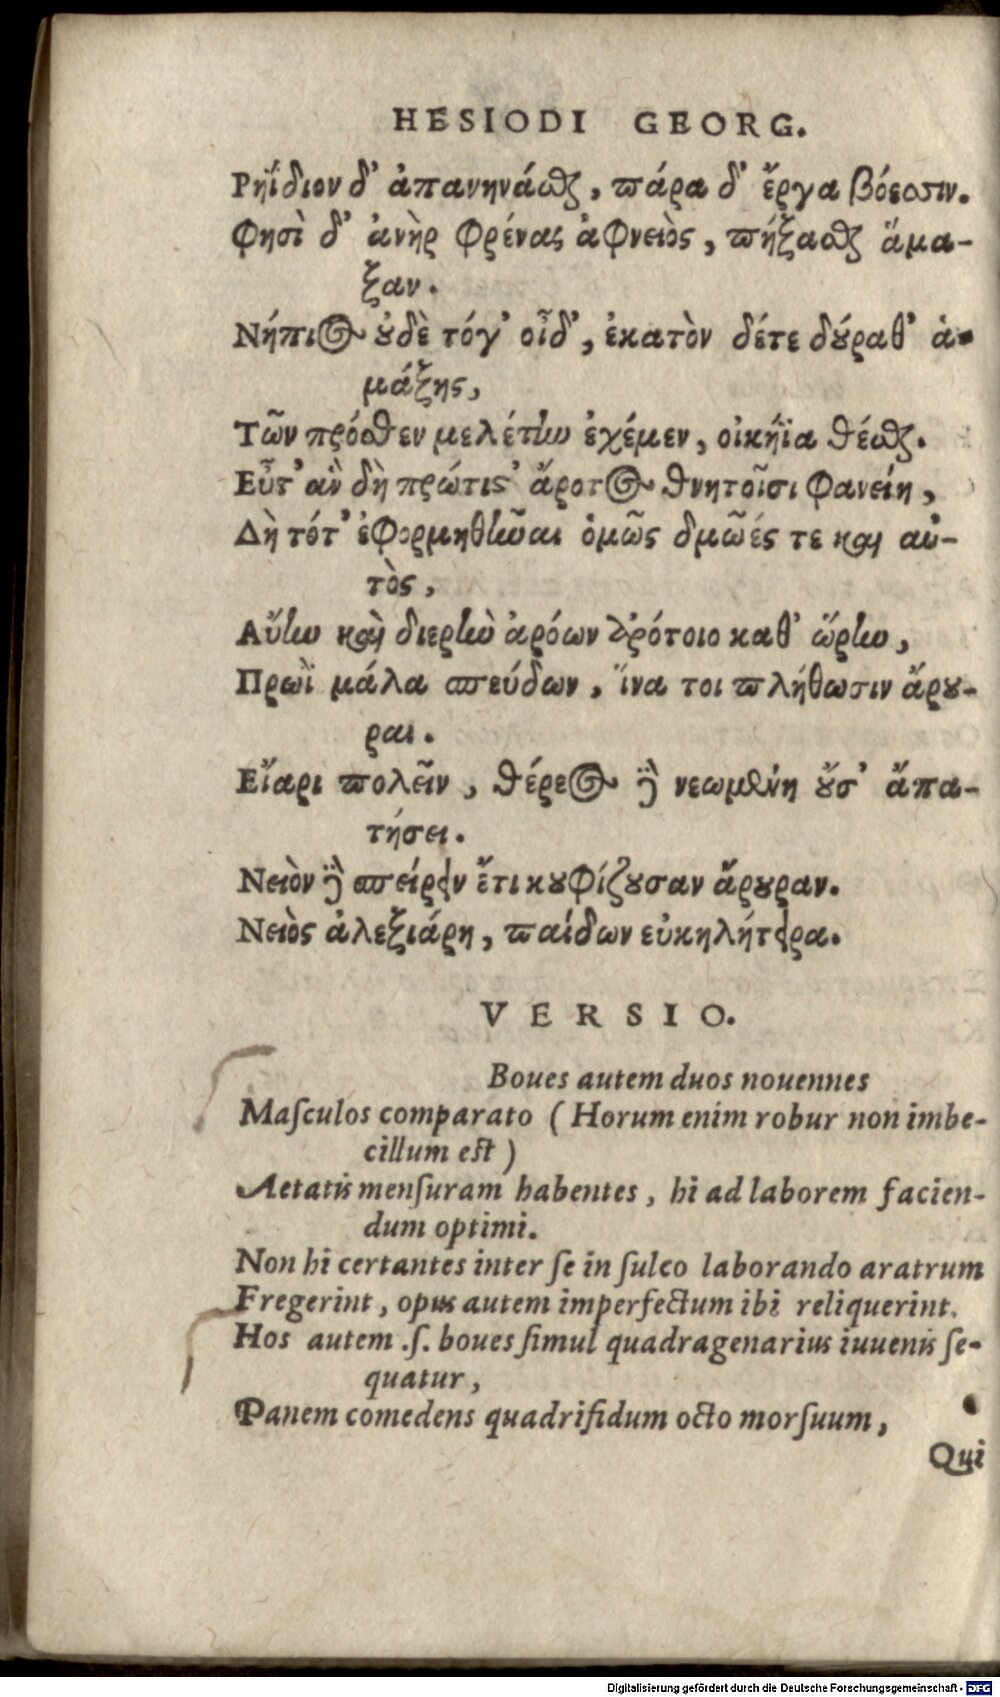 HESIODI GEORG.
Ρηΐδιον δ᾽ ἀπανηνάσθαι, πάρα δ᾽ ἔργα βόεσσιν.
Φησὶ δ᾽ ἀνὴρ φρένας ἀφνειὸς, πήξασθαι ἅμα-
ξαν.
Νήπιος οὐδὲ τόγ᾽ οἶδ᾽, ἑκατὸν δέτε δούραθ᾽ ἁ-
μάξης,
Τῶν πρόσθεν μελέτην ἐχέμεν, οἰκήϊα θέσθαι.
Εὖτ᾽ ἂν δὴ πρώτιστ᾽ ἄροτος θνητοῖσι φανείη,
Δὴ τότ᾽ ἐφορμηθῆναι ὁμῶς δμῶές τε καὶ αὐ-
τὸς,
Αὔην καὶ διερὴν ἀρόων ἀρότοιο καθ᾽ ὥρην,
Πρωῒ μάλα σπεύδων, ἵνα τοι πλήθωσιν ἄρου-
ραι.
Εἴαρι πολεῖν, θέρεος δὲ νεωμένη οὔσ᾽ ἄπα-
τήσει.
Νειὸν δὲ σπείρειν ἔτι κουφίζουσαν ἄρουραν.
Νειὸς ἀλεξιάρη, παίδων εὐκηλήτειρα.
VERSIO.
Boues autem duos nouennes
Maſculos comparato (Horum enim robur non imbe-
cillum est)
Aetatis menſuram habentes, hi ad laborem facien-
dum optimi.
Non hi certantes inter ſe in ſulco laborando aratrum
Fregerint, opus autem imperfectum ibi reliquerint.
Hos autem .ſ. boues ſimul quadragenarius iuuenis ſe-
quatur,
Panem comedens quadrifidum octo morſuum,
Qui
Digitalisierung gefördert durch die Deutsche Forschungsgemeinschaft - DFG